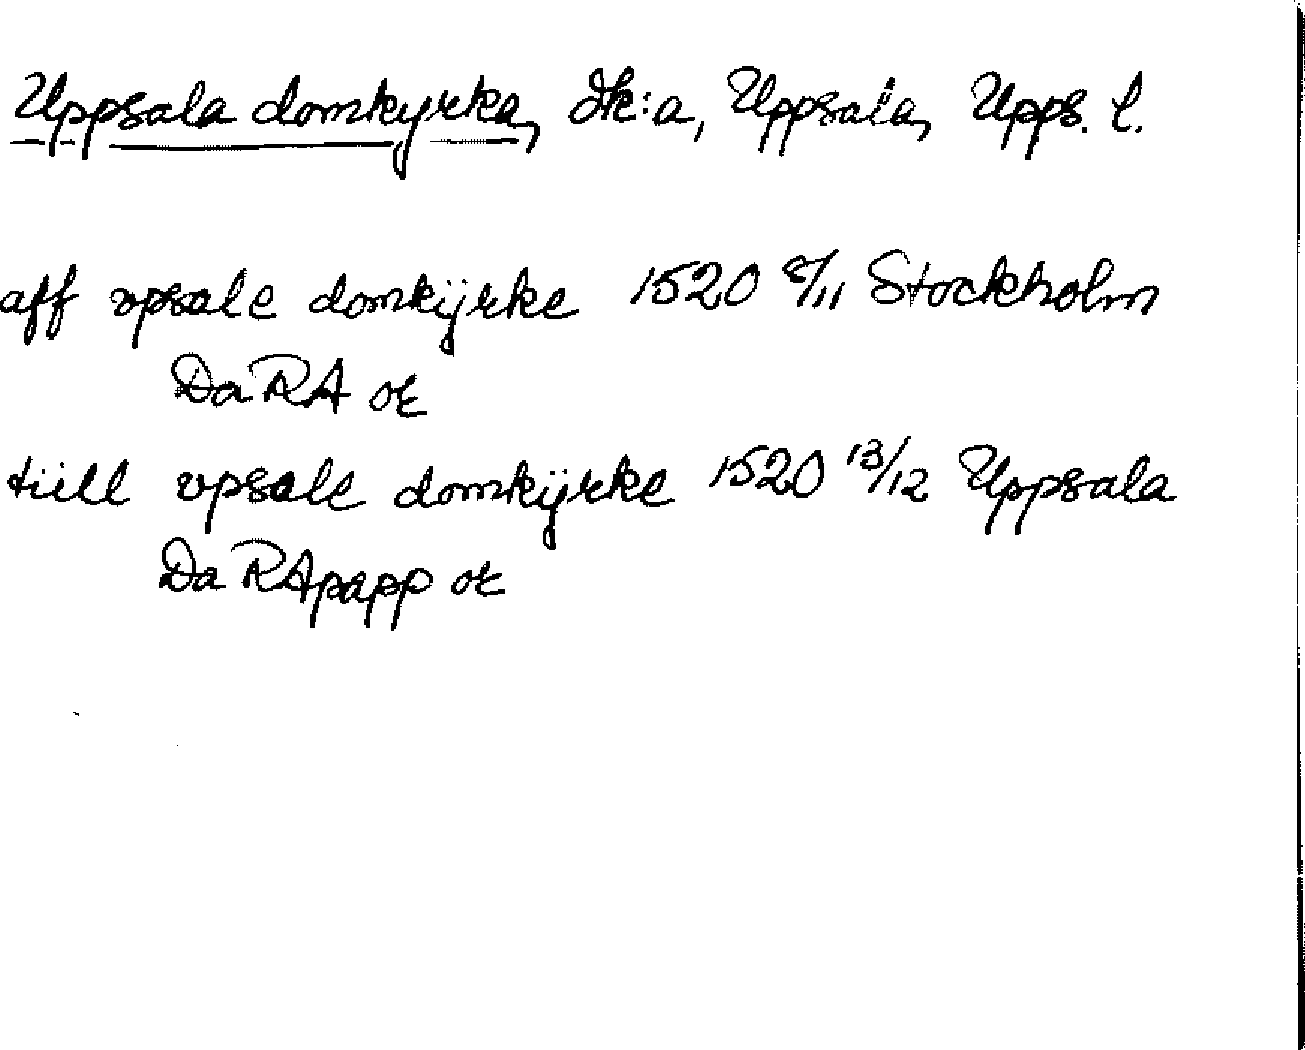 Uppsala domkyrka, dk:a, Uppsala, Upps. l.
aff vpsale domkijrke 1520 8/11 Stockholm
DaRA ok
tiill vpsale domkÿrke 1520 13/12 Uppsala
DaRApapp ok